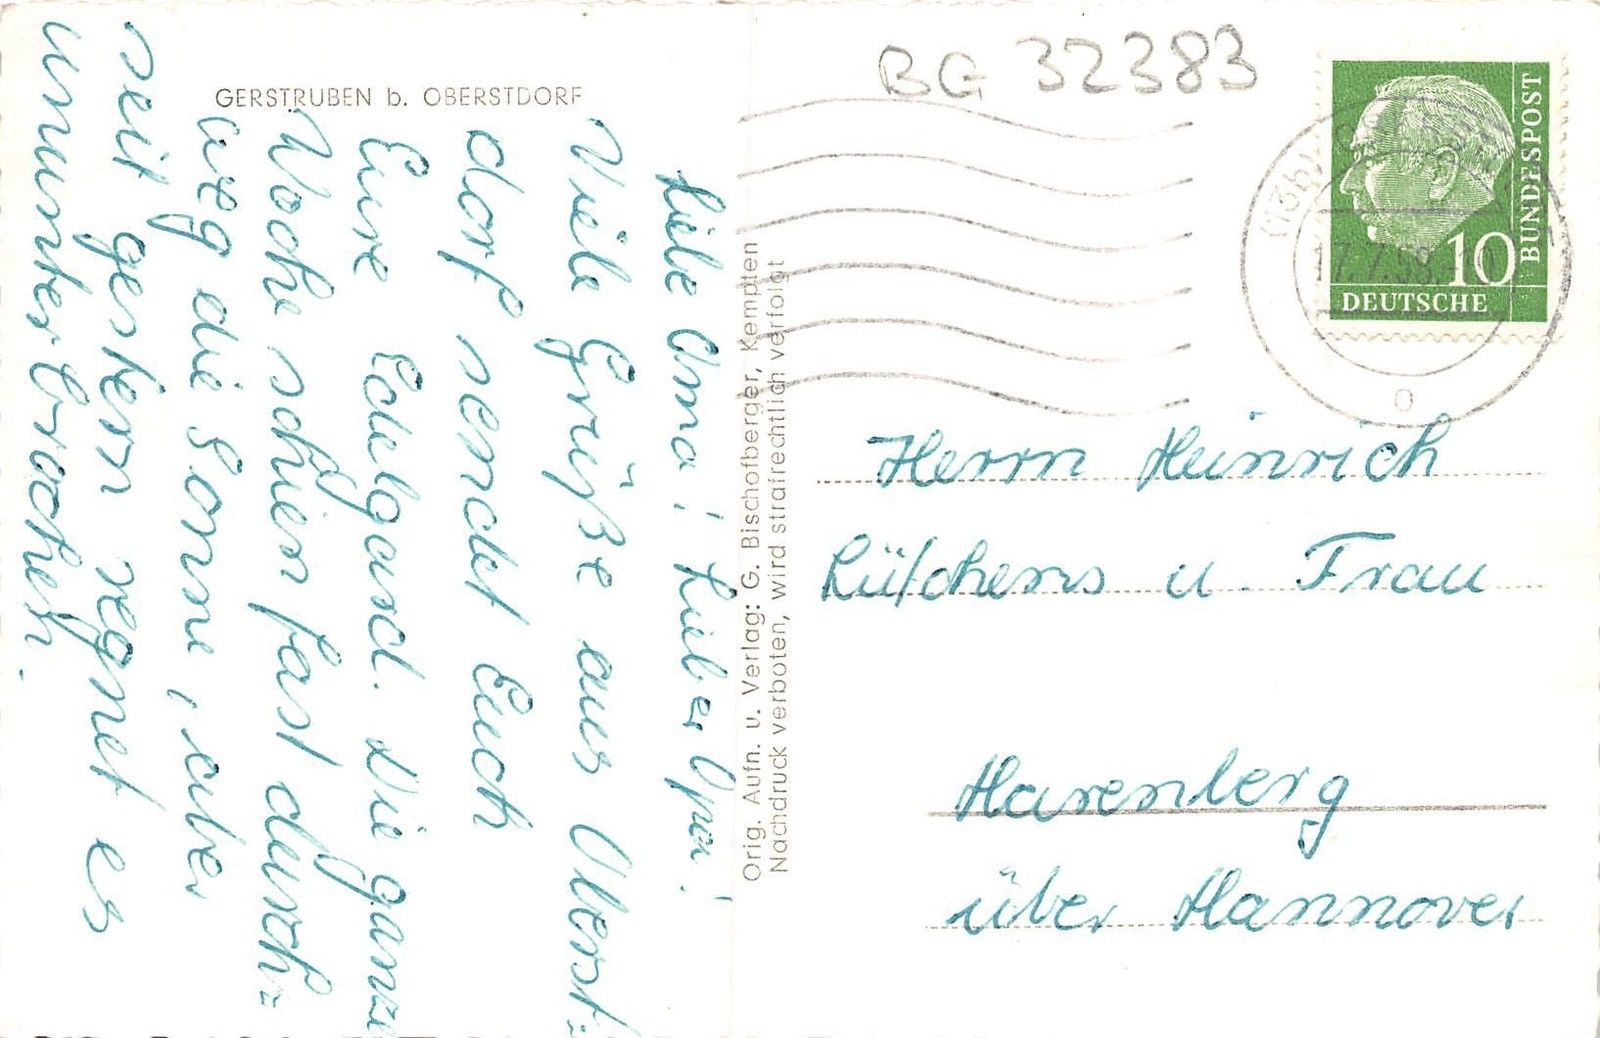 GERSTRUBEN b. OBERSTDORF
Liebe Oma! Lieber Opa!
Viele Grüße aus Oberst-
dorf sendet Euch
Eure Edelgard. Die ganze
Woche schien fast durch-
weg die Sonne, aber
seit gestern regnet es
ununterbrochen.
Orig. Aufn. u. Verlag: G. Bischofberger, Kempten
Nachdruck verboten, wird strafrechtlich verfolgt
BG 32383
DEUTSCHE
BUNDESPOST
10
(13b)
17.7.58.
o
Herrn Heinrich
u. Frau
Harenberg
über Hannover